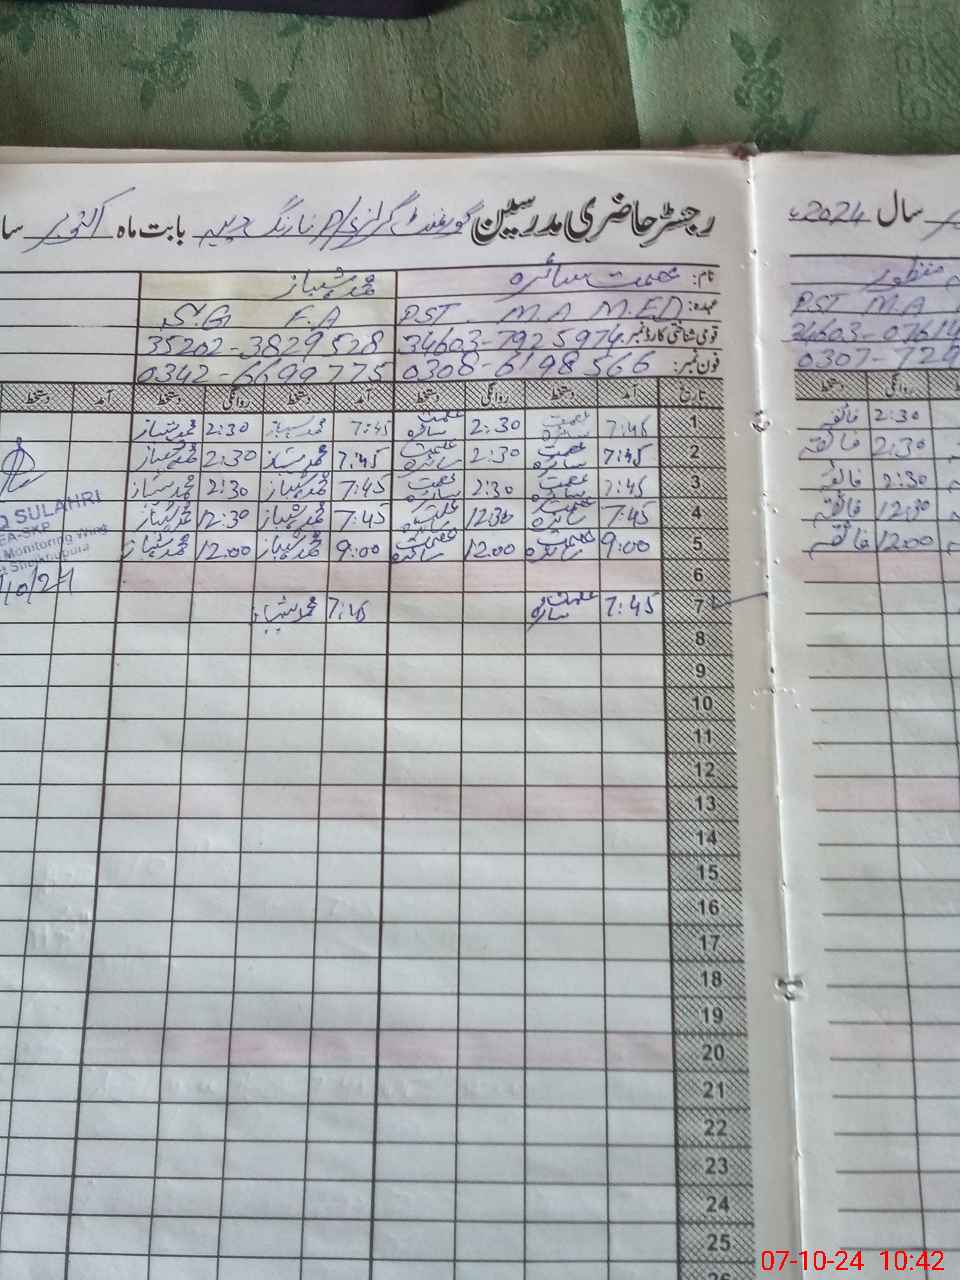 رجسٹر حاضری مدرسین گورنمنٹ گرلز P/S نارنگ دیپہ بابت ماہ اکتوبر سا
سال 2024ء
نام: عصمت سائرہ محمد شہباز
عہدہ: PST M.A M.ED S.G F.A
قومی شناختی کارڈ نمبر 34603-7925974 35202-3829528
فون نمبر: 0308-6198566 0342-6699775
تاریخ آمد دستخط روانگی دستخط آمد دستخط روانگی دستخط آمد دستخط
1 7:45 عصمت سائرہ 2:30 عصمت سائرہ 7:45 محمد شہباز 2:30 محمد شہباز
2 7:45 عصمت سائرہ 2:30 عصمت سائرہ 7:45 محمد شہباز 2:30 محمد شہباز
3 7:45 عصمت سائرہ 2:30 عصمت سائرہ 7:45 محمد شہباز 2:30 محمد شہباز
4 7:45 عصمت سائرہ 12:30 عصمت سائرہ 7:45 محمد شہباز 12:30 محمد شہباز
5 9:00 عصمت سائرہ 12:00 عصمت سائرہ 9:00 محمد شہباز 12:00 محمد شہباز
6
7 7:45 عصمت سائرہ 7:45 محمد شہباز
8
9
10
11
12
13
14
15
16
17
18
19
20
21
22
23
24
25
26
SULAHRI
Monitoring Wing
منظور
PST M.A
34603-07614
0307-729
روانگی دستخط
2:30 فائقہ
2:30 فائقہ
2:30 فائقہ
12:30 فائقہ
12:00 فائقہ
07-10-24 10:42